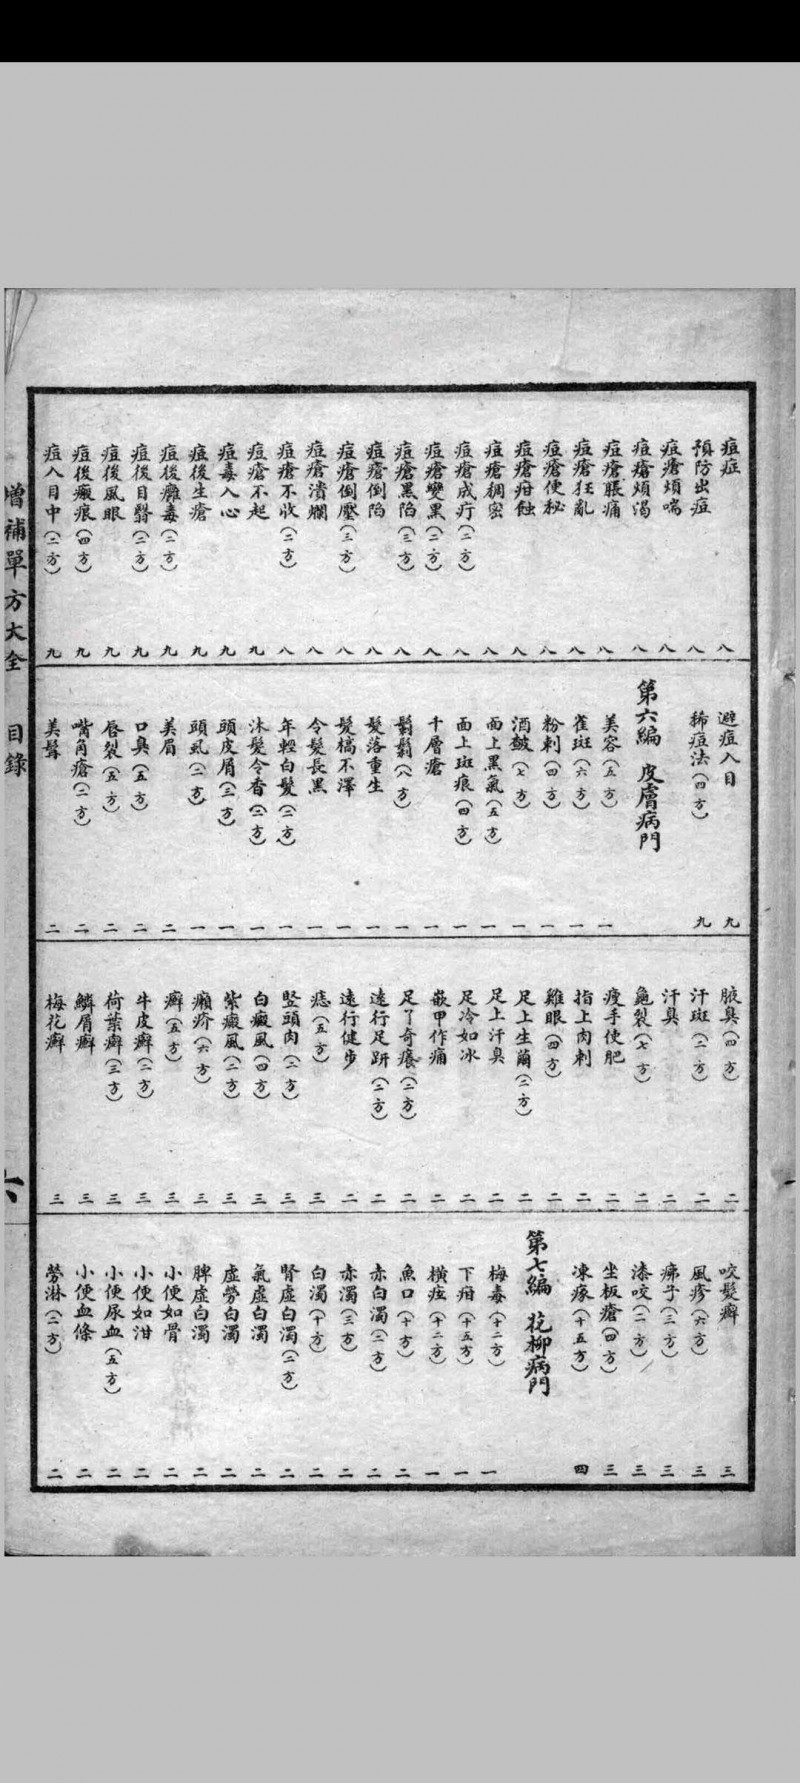 痘症 八
預防出痘 八
痘瘡煩喘 八
痘瘡煩渴 八
痘瘡脹痛 八
痘瘡狂亂 八
痘瘡便秘 八
痘瘡疳蝕 八
痘瘡稠密 八
痘瘡成疔(二方) 八
痘瘡變黑(二方) 八
痘瘡黑陷(三方) 八
痘瘡倒陷 八
痘瘡倒壓(三方) 八
痘瘡潰爛 八
痘瘡不收(二方) 八
痘瘡不起 九
痘毒入心 九
痘後生瘡 九
痘後癰毒(二方) 九
痘後目翳(二方) 九
痘後風眼 九
痘後瘢痕(四方) 九
痘入目中(二方) 九
避痘入目 九
稀痘法(四方) 九
第六編 皮膚病門
美容(五方) 一
雀斑(六方) 一
粉刺(四方) 一
酒皶(七方) 一
面上黑氣(五方) 一
面上斑痕(四方) 一
千層瘡 一
鬍鬚(八方) 一
髮落重生 一
髮槁不澤 一
令髮長黑 一
年輕白髮(二方) 一
沐髮令香(二方) 一
頭皮屑(三方) 一
頭虱(二方) 一
美眉 二
口臭(五方) 二
唇裂(五方) 二
嘴角瘡(二方) 二
美髯 二
腋臭(四方) 二
汗斑(二方) 二
汗臭 二
龜裂(七方) 二
瘦手使肥 二
指上肉刺 二
雞眼(四方) 二
足上生繭(二方) 二
足上汗臭 二
足冷如冰 二
嵌甲作痛 二
足丫奇癢(二方) 二
遠行足趼(二方) 二
遠行健步 二
痣(五方) 三
豎頭肉(二方) 三
白癜風(四方) 三
紫癜風(二方) 三
癩疥(六方) 三
癬(五方) 三
牛皮癬(二方) 三
荷葉癬(三方) 三
鱗屑癬 三
梅花癬 三
咬髮癬 三
風疹(六方) 三
痱子(三方) 三
漆咬(二方) 三
坐板瘡(四方) 三
凍瘃(十五方) 四
第七編 花柳病門
梅毒(十二方) 一
下疳(十五方) 一
橫痃(十二方) 一
魚口(十方) 二
赤白濁(二方) 二
赤濁(三方) 二
白濁(十方) 二
腎虛白濁(二方) 二
氣虛白濁 二
虛勞白濁 二
脾虛白濁 二
小便如骨 二
小便如泔 二
小便尿血(五方) 二
小便血條 二
勞淋(二方) 二
增補單方大全 目錄
六